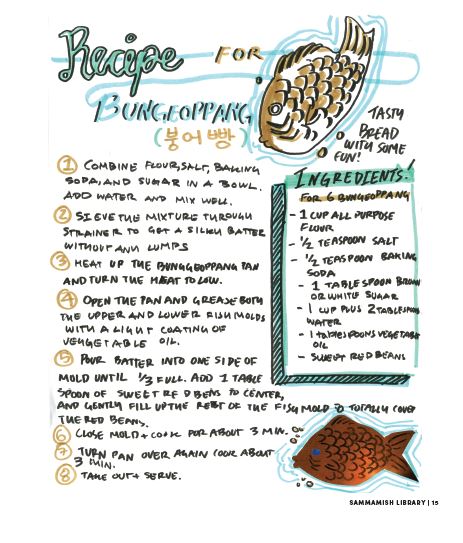 Recipe FOR
BUNGEOPPANG
(붕어빵)
TASTY
BREAD
WITH SOME
FUN!
① COMBINE FLOUR, SALT, BAKING
SODA, AND SUGAR IN A BOWL.
ADD WATER AND MIX WELL.
② SIEVE THE MIXTURE THROUGH
STRAINER TO GET A SILKY BATTER
WITHOUT ANY LUMPS
③ HEAT UP THE BUNGGEOPPANG PAN
AND TURN THE HEAT TO LOW.
④ OPEN THE PAN AND GREASE BOTH
THE UPPER AND LOWER FISH MOLDS
WITH A LIGHT COATING OF
VEGGETABLE OIL.
⑤ POUR BATTER INTO ONE SIDE OF
MOLD UNTIL 1/3 FULL. ADD 1 TABLE
SPOON OF SWEET RED BEANS TO CENTER,
AND GENTLY FILL UP THE REST OF THE FISH MOLD TO TOTALLY COVER
THE RED BEANS.
⑥ CLOSE MOLD + COOK FOR ABOUT 3 MIN.
⑦ TURN PAN OVER AGAIN COOK ABOUT
3 MIN.
⑧ TAKE OUT + SERVE.
INGREDIENTS!
FOR 6 BUNGEOPPANG
- 1 CUP ALL PURPOSE
FLOUR
- 1/2 TEASPOON SALT
- 1/2 TEASPOON BAKING
SODA
- 1 TABLESPOON BROWN
OR WHITE SUGAR
- 1 CUP PLUS 2 TABLESPOONS
WATER
- 1 TABLESPOONS VEGETABLE
OIL
- SWEET RED BEANS
SAMMAMISH LIBRARY | 15